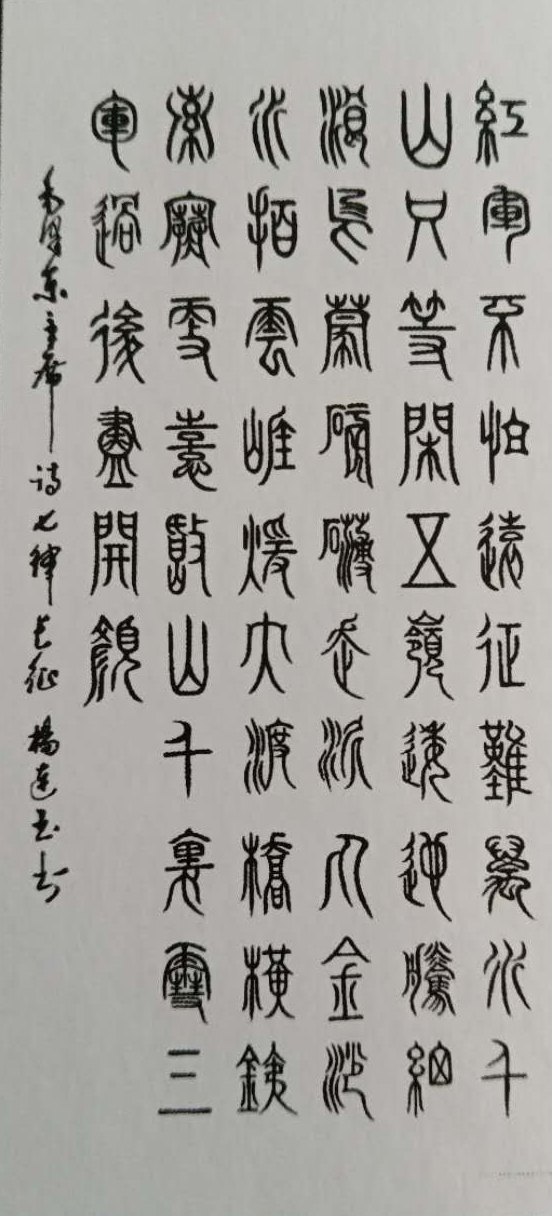 紅軍不怕遠征難萬水千
山只等閑五嶺逶迤騰細
浪烏蒙磅礴走泥丸金沙
水拍雲崖暖大渡橋橫鐵
索寒更喜岷山千裏雪三
軍過後盡開顏
毛泽东主席诗七律长征 楊連玉书